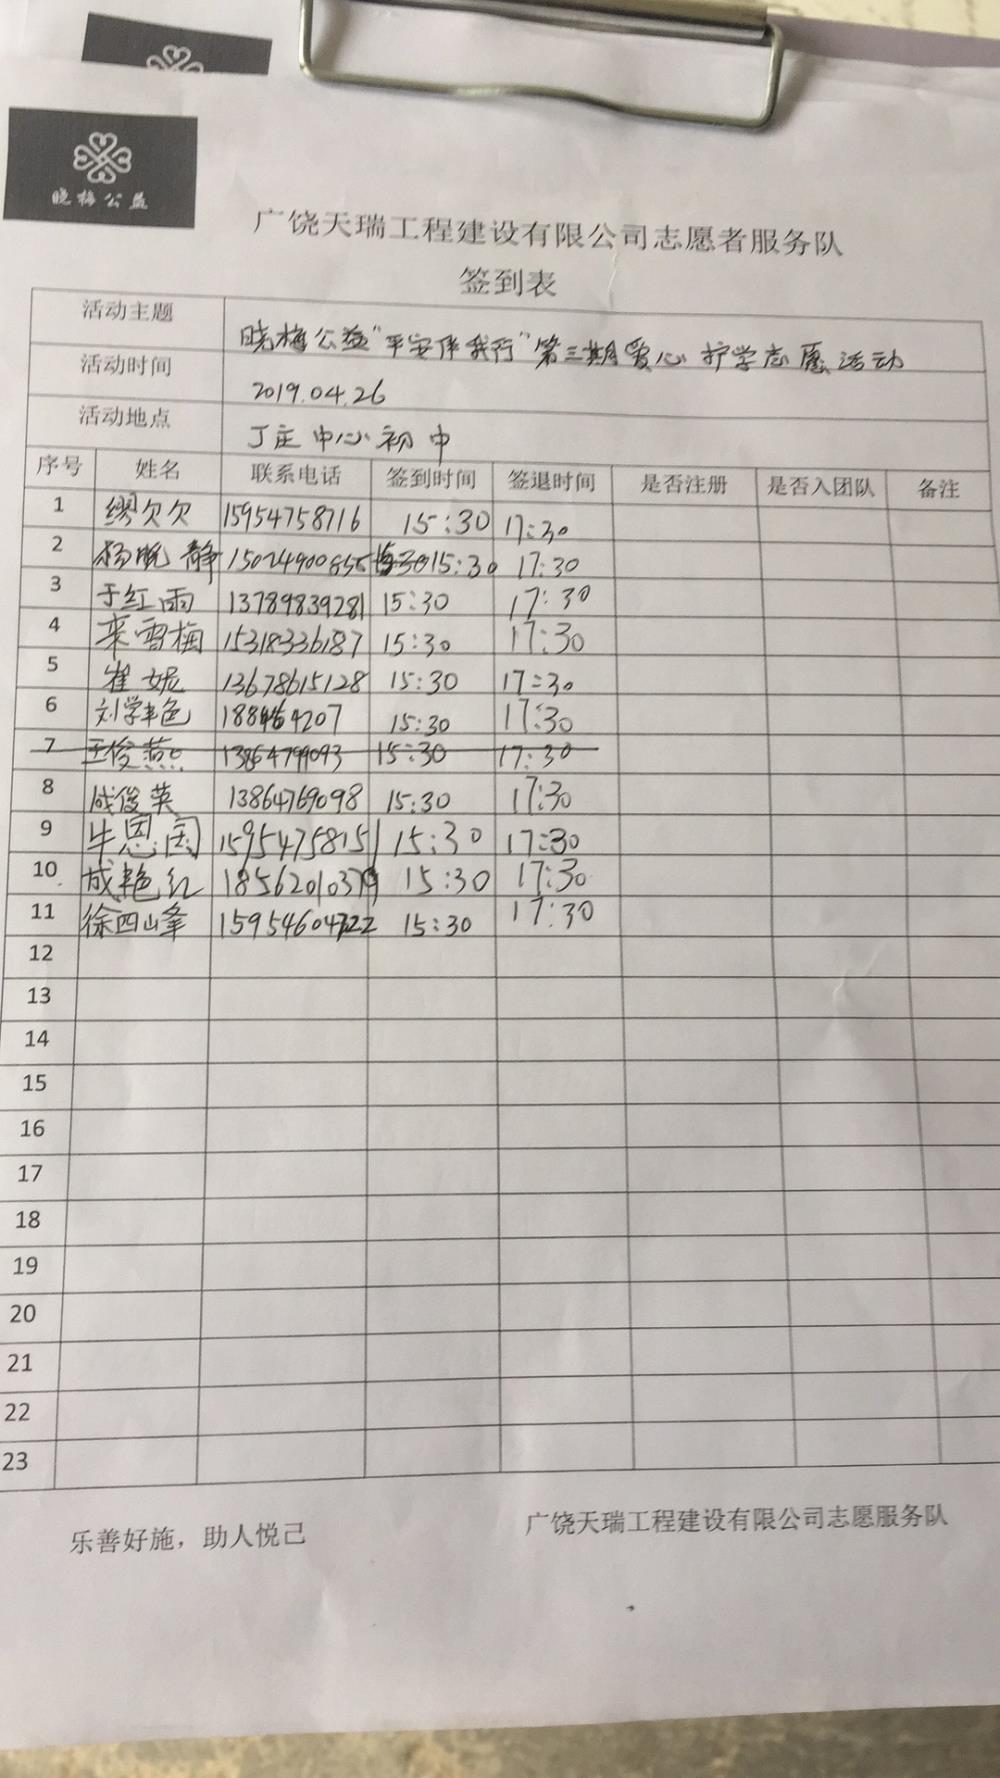 晓梅公益
广饶天瑞工程建设有限公司志愿者服务队
签到表
活动主题 晓梅公益“平安伴我行”第三期爱心护学志愿活动
活动时间 2019.04.26
活动地点 丁庄中心初中
序号 姓名 联系电话 签到时间 签退时间 是否注册 是否入团队 备注
1 缪欠欠 15954758716 15:30 17:30
2 杨晓静 15:30 17:30
3 于红雨 13789839281 15:30 17:30
4 来雪梅 15318336187 15:30 17:30
5 崔妮 13678615128 15:30 17:30
6 刘学艳 15:30 17:30
7 王俊燕 13864799093 15:30 17:30
8 成俊英 13864769098 15:30 17:30
9 牛恩国 15954758151 15:30 17:30
10 成艳红 18562010379 15:30 17:30
11 徐四峰 15954604722 15:30 17:30
12
13
14
15
16
17
18
19
20
21
22
23
乐善好施，助人悦己 广饶天瑞工程建设有限公司志愿服务队